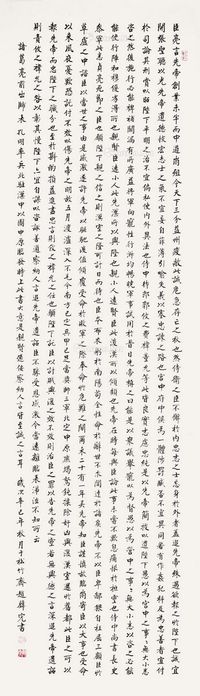 臣亮言先帝創業未半而中道崩殂今天下三分益州疲敝此誠危急存亡之秋也然侍衛之臣不懈於內忠志之士忘身於外者蓋追先帝之殊遇欲報之於陛下也誠宜
開張聖聽以光先帝遺德恢弘志士之氣不宜妄自菲薄引喻失義以塞忠諫之路也宮中府中俱為一體陟罰臧否不宜異同若有作姦犯科及為忠善者宜付
有司論其刑賞以昭陛下平明之治不宜偏私使內外異法也侍中侍郎郭攸之費禕董允等此皆良實志慮忠純是以先帝簡拔以遺陛下愚以為宮中之事事無大小悉以
咨之然後施行必能裨補闕漏有所廣益將軍向寵性行淑均曉暢軍事試用於昔日先帝稱之曰能是以眾議舉寵為督愚以為營中之事事無大小悉以咨之必
能使行陣和穆優劣得所也親賢臣遠小人此先漢所以興隆也親小人遠賢臣此後漢所以傾頹也先帝在時每與臣論此事未嘗不歎息痛恨於桓靈也侍中尚書長史
參軍此悉貞亮死節之臣也願陛下親之信之則漢室之隆可計日而待也臣本布衣躬耕於南陽苟全性命於亂世不求聞達於諸侯先帝不以臣卑鄙猥自枉屈三顧臣於
草廬之中諮臣以當世之事由是感激遂許先帝以驅馳後值傾覆受任於敗軍之際奉命於危難之間爾來二十有一年矣先帝知臣謹慎故臨崩寄臣以大事也受命
以來夙夜憂歎恐託付不效以傷先帝之明故五月渡瀘深入不毛今南方已定兵甲已足當獎帥三軍北定中原庶竭駑鈍攘除奸凶興復漢室還於舊都此臣之所以
報先帝而忠陛下之職分也至於斟酌損益進盡忠言則攸之禕允之任也願陛下託臣以討賊興復之效不效則治臣之罪以告先帝之靈若無興德之言
則責攸之禕允之咎以彰其慢陛下亦宜自謀以諮諏善道察納雅言深追先帝遺詔臣不勝受恩感激今當遠離臨表涕泣不知所云
諸葛亮前出師表孔明率兵北駐漢中以圖中原臨發上此書大意是親賢遠佞察納雅言皆至誠之言耳 辛巳年秋月於 齋趙 書